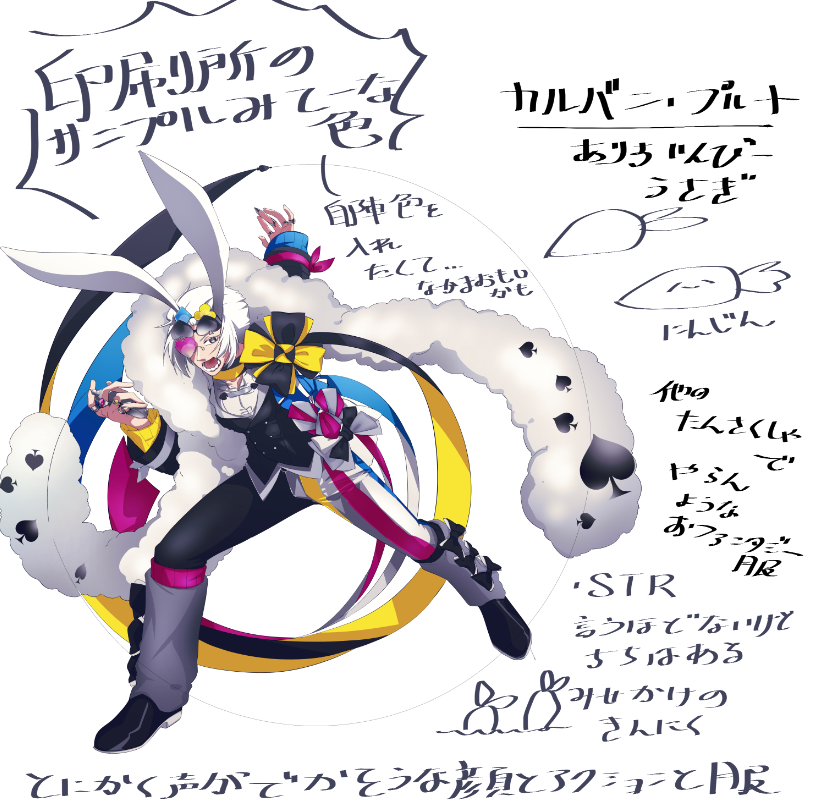 印刷所の
サンプルみてーな
色
カルバン・プルート
ありす いんぴー
うさぎ
自陣色を
入れ
たくて…
なかまおもい
かも
にんじん
他の
たんさくしゃ
で
やらん
ような
おつファンタジー
服
・STR
言うほどでないけど
ちらはある
みせかけの
さんにく
とにかく声がでかそうな顔とアクションと服